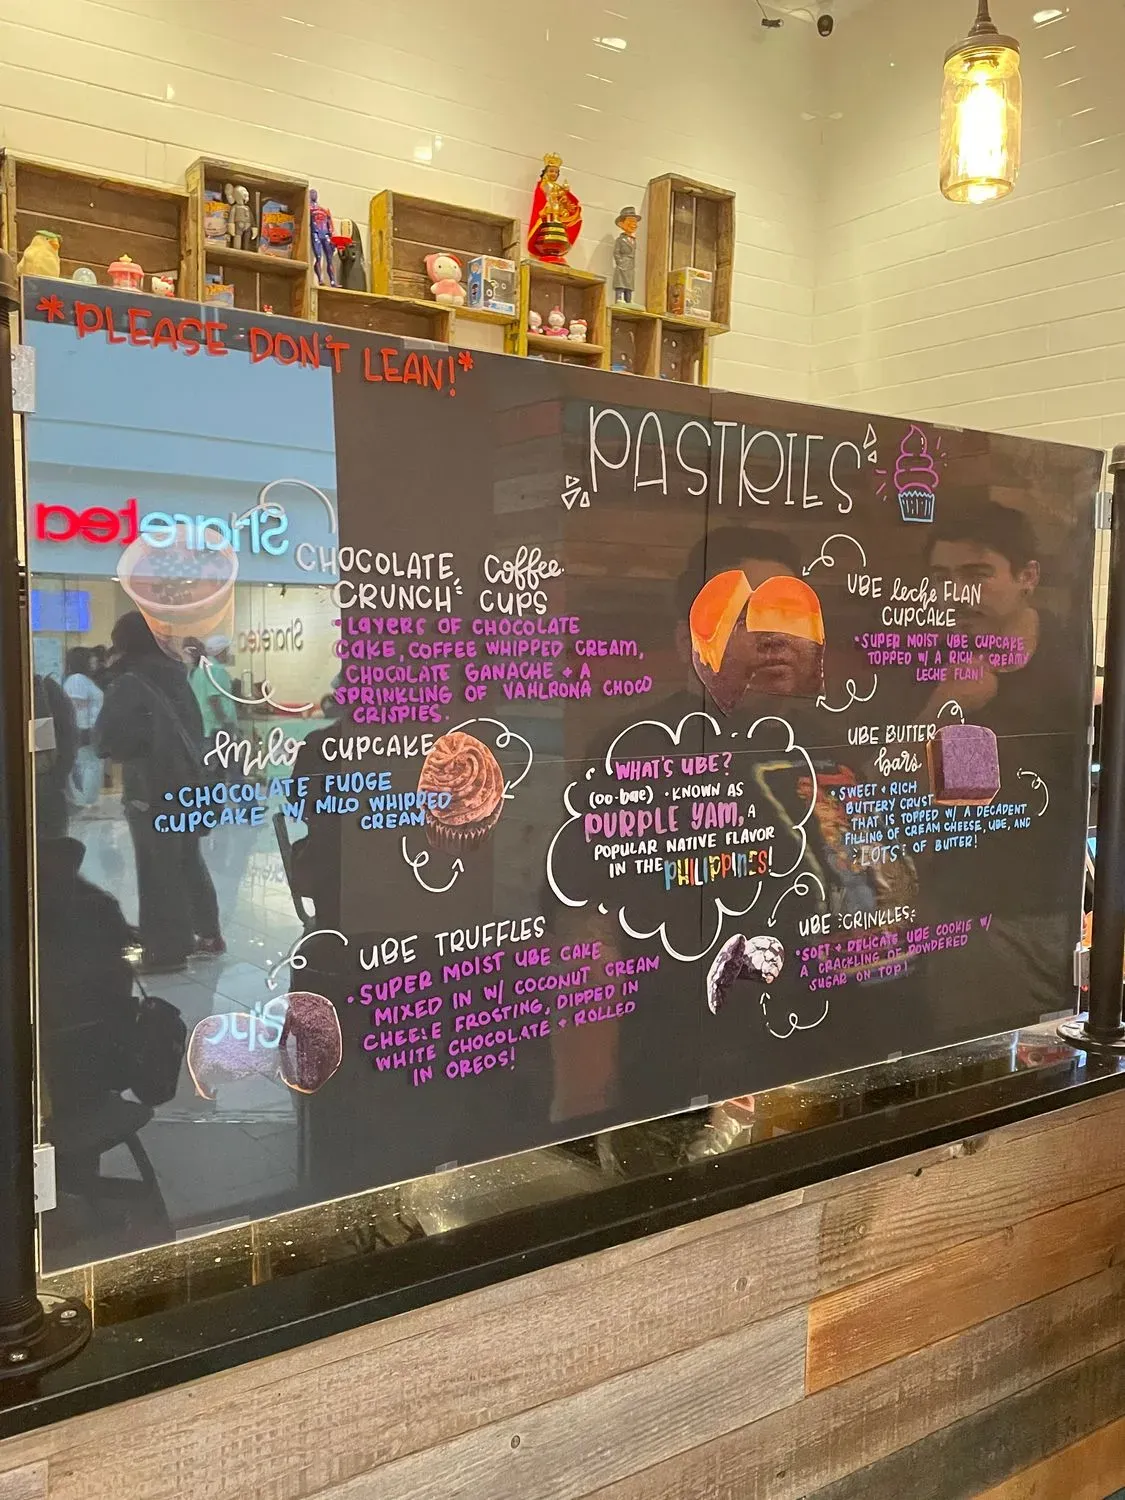 *PLEASE DON'T LEAN!*
PASTRIES
Sharetea
Sharetea
CHOCOLATE COFFEE
CRUNCH CUPS
• LAYERS OF CHOCOLATE
CAKE, COFFEE WHIPPED CREAM,
CHOCOLATE GANACHE + A
SPRINKLING OF VAHLRONA CHOCO
CRISPIES.
Milo CUPCAKE
• CHOCOLATE FUDGE
CUPCAKE W/ MILO WHIPPED
CREAM.
UBE TRUFFLES
• SUPER MOIST UBE CAKE
MIXED IN W/ COCONUT CREAM
CHEESE FROSTING, DIPPED IN
WHITE CHOCOLATE + ROLLED
IN OREOS!
WHAT'S UBE?
(oo-bae) • KNOWN AS
PURPLE YAM, A
POPULAR NATIVE FLAVOR
IN THE PHILIPPINES!
UBE leche FLAN
CUPCAKE
• SUPER MOIST UBE CUPCAKE
TOPPED W/ A RICH + CREAMY
LECHE FLAN!
UBE BUTTER
bars
• SWEET + RICH
BUTTERY CRUST
THAT IS TOPPED W/ A DECADENT
FILLING OF CREAM CHEESE, UBE, AND
LOTS OF BUTTER!
UBE CRINKLES
• SOFT + DELICATE UBE COOKIE W/
A CRACKLING OF POWDERED
SUGAR ON TOP!